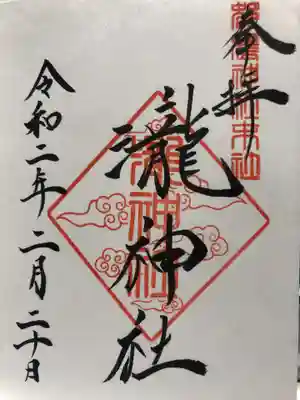 奉拝
瀧神社
令和二年二月二十日